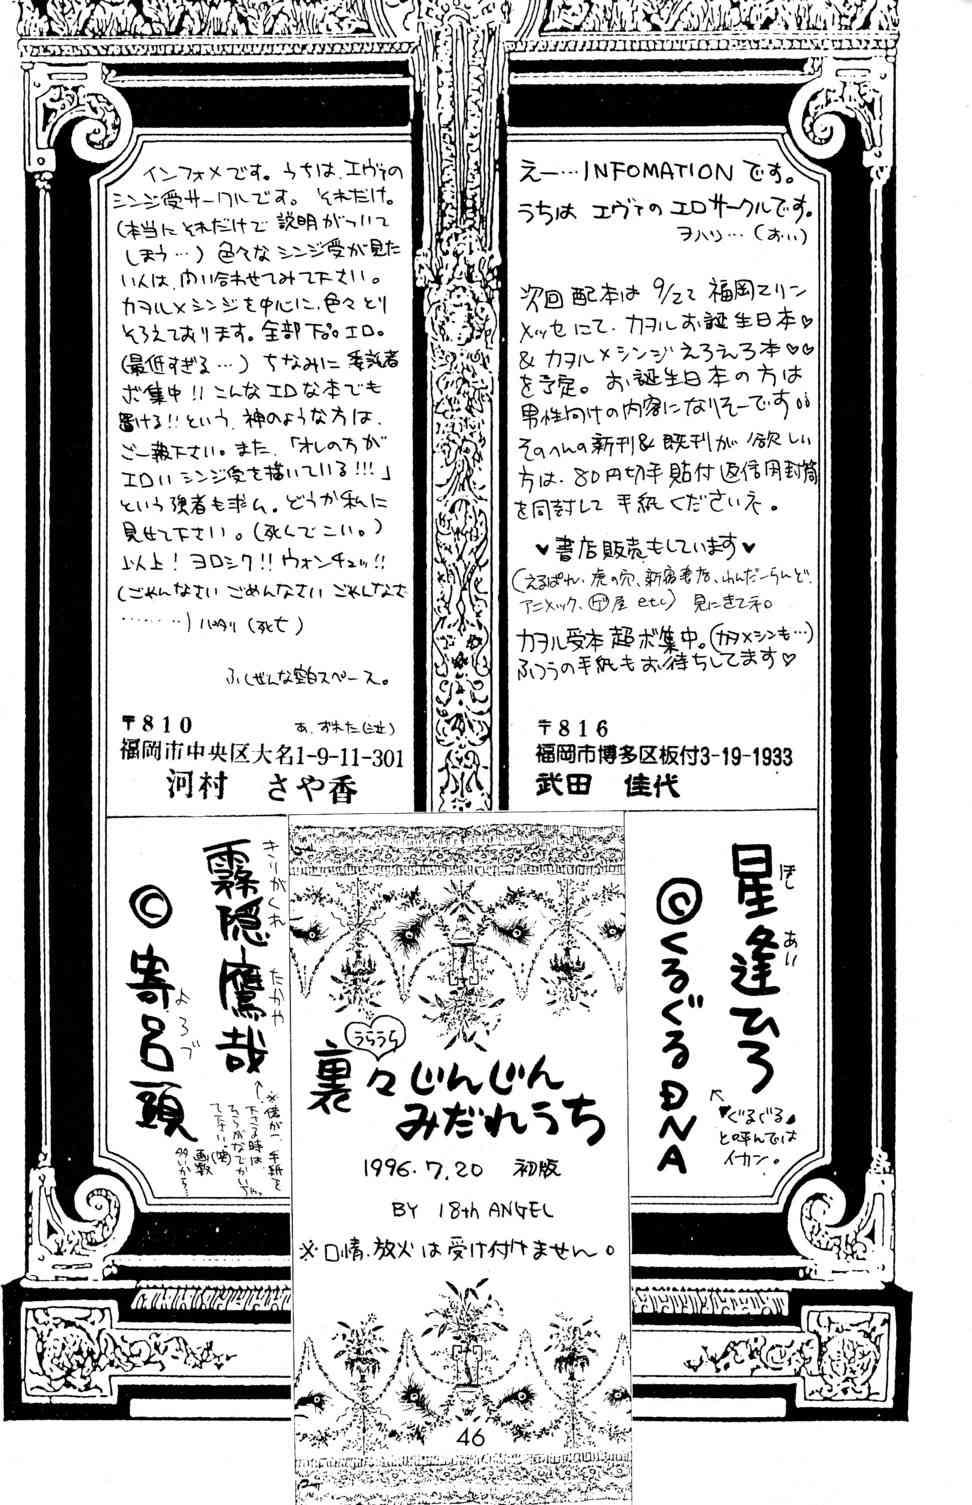 えー…INFOMATIONです。
うちは エヴァのエロサークルです。
ヲハリ…(おい)
次回配本は 9/22 福岡マリン
メッセにて、カヲルお誕生日本♡
& カヲル×シンジえろえろ本♡♡
を予定。お誕生日本の方は
男性向けの内容になりそーです
そのへんの新刊&既刊が欲しい
方は、80円切手貼付返信用封筒
を同封して 手紙くださいネ。
♥書店販売もしています♥
(えるぱれ、虎の穴、新宿書店、わんだーらんど、
アニメック、ゲ屋 etc) 見にきてネ。
カヲル受本 超ボ集中。(カヲ×シンも…)
ふつうの手紙もお待ちしてます♡
〒816
福岡市博多区板付3-19-1933
武田 佳代
インフォメです。うちは、エヴァの
シンジ受サークルです。それだけ。
(本当にそれだけで 説明がついて
しまう…) 色々なシンジ受が見た
い人は、問い合わせてみて下さい。
カヲル×シンジを中心に、色々とり
そろえております。全部下品。エロ。
(最低すぎる…) ちなみに 委託者
ボ集中!! こんなエロな本でも
置ける!! という、神のような方は、
ご一報下さい。また、「オレの方が
エロいシンジ受を描いている!!!」
という強者も求ム。どうか私に
見せて下さい。(死んでこい。)
以上! ヨロシク!! ウォンチュッ!!
(ごめんなさい ごめんなさい ごめんなさ
………) バタリ (死亡)
ふしぜんな空白スペース。
〒810
あ、ずれた(泣)
福岡市中央区大名1-9-11-301
河村 さや香
星逢ひろ
ほし あい
©くるぐるDNA
↖♥ぐるぐる♥
と呼んでは
イカン。
うらうら
裏々じんじん
みだれうち
1996.7.20 初版
BY 18th ANGEL
※口情、放火は受け付けません。
霧隠鷹哉
きりがくれ たかや
©寄呂頭
よろづ
46